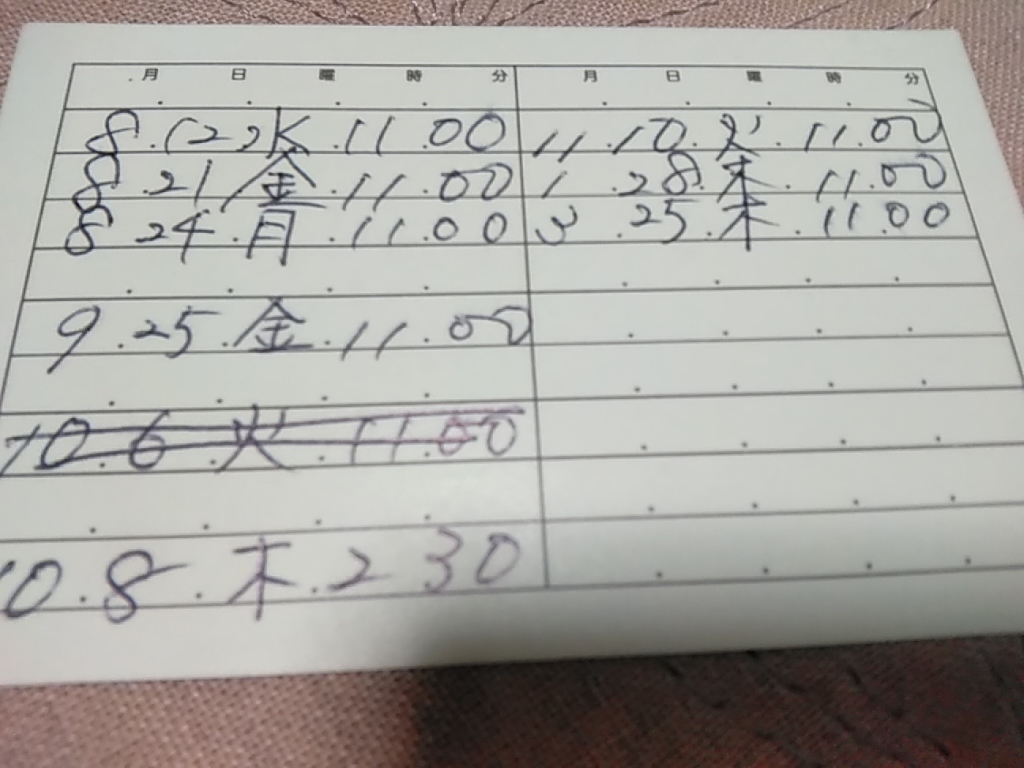 月 日 曜 時 分
8.12.水.11.00
8.21.金.11.00
8.24.月.11.00
9.25.金.11.00
10.6.火.11.00
10.8.木.2 30
月 日 曜 時 分
11.10.火.11.00
1.28.木.11.00
3.25.木.11.00